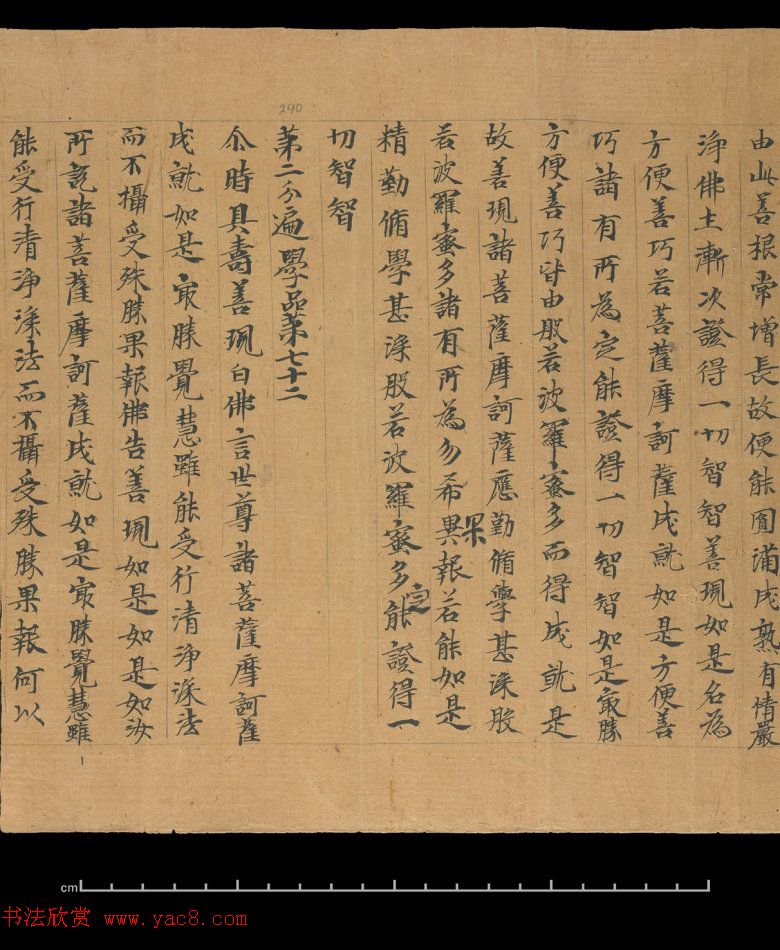 由此善根常增長故便能圓滿成熟有情嚴
淨佛土漸次證得一切智智善現如是名為
方便善巧若菩薩摩訶薩成就如是方便善
巧諸有所為定能證得一切智智如是最勝
方便善巧皆由般若波羅蜜多而得成就是
故善現諸菩薩摩訶薩應勤脩學甚深般
若波羅蜜多諸有所為勿希果異報若能如是
精勤脩學甚深般若波羅蜜多定能證得一
切智智
290
第二分遍學品第七十二
尒時具壽善現白佛言世尊諸菩薩摩訶薩
成就如是最勝覺慧雖能受行清淨深法
而不攝受殊勝果報佛告善現如是如是如汝
所說諸菩薩摩訶薩成就如是最勝覺慧雖
能受行清淨深法而不攝受殊勝果報何以
cm
书法欣赏 www.yac8.com